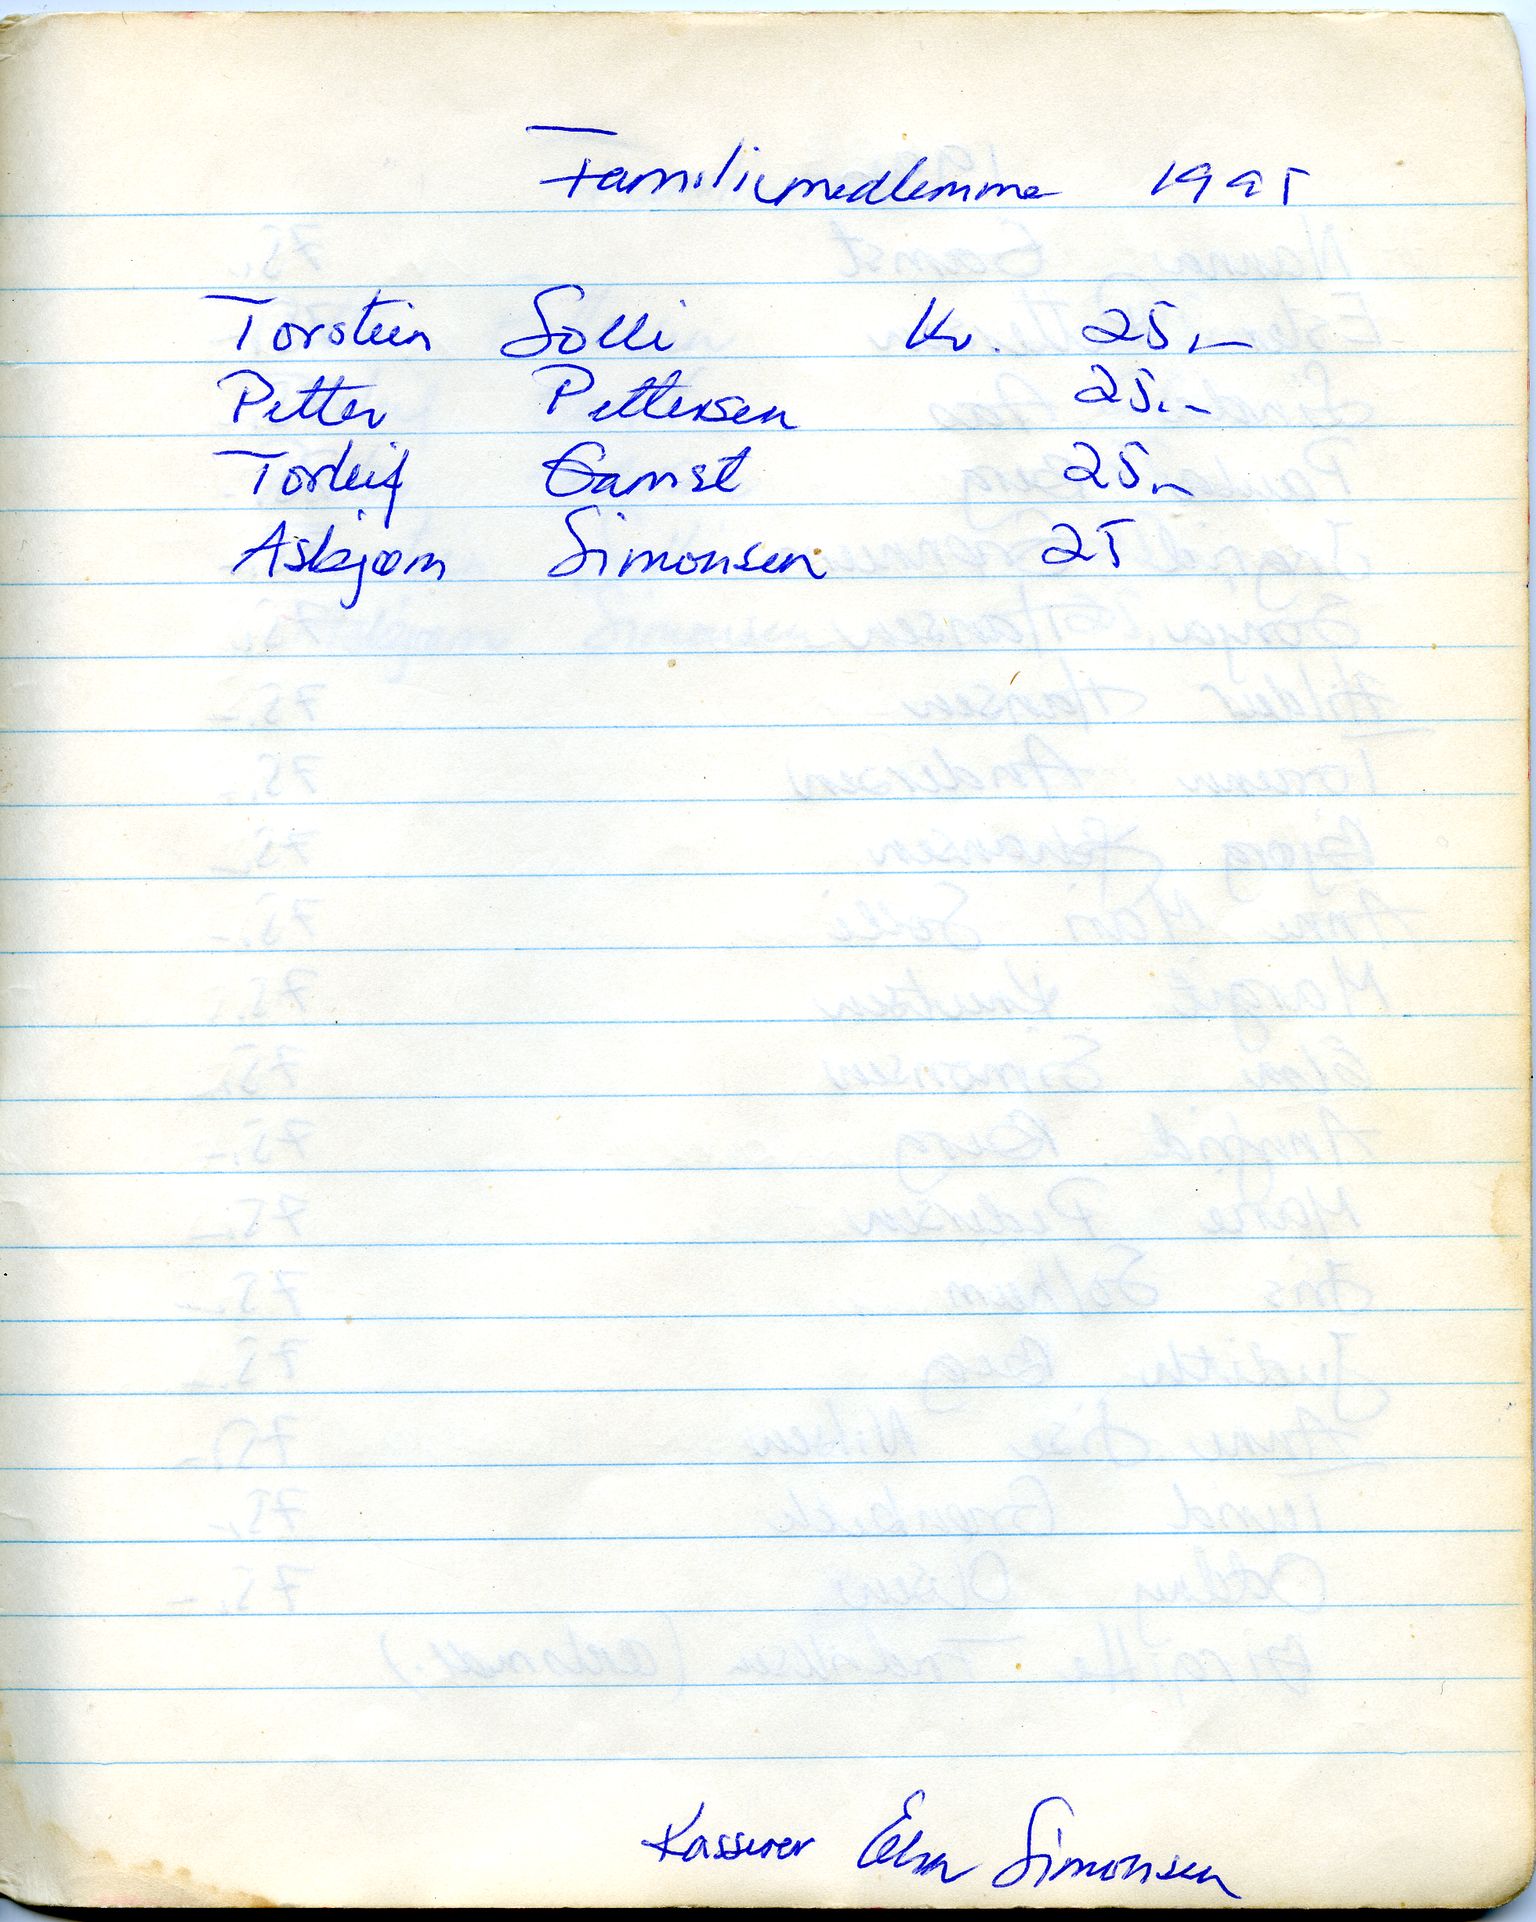 Familiemedlemme 1995
Torstein Solli Kr. 25,-
Petter Pettersen 25,-
Torleif Gamst 25,-
Asbjørn Simonsen 25
Kasserer Elen Simonsen